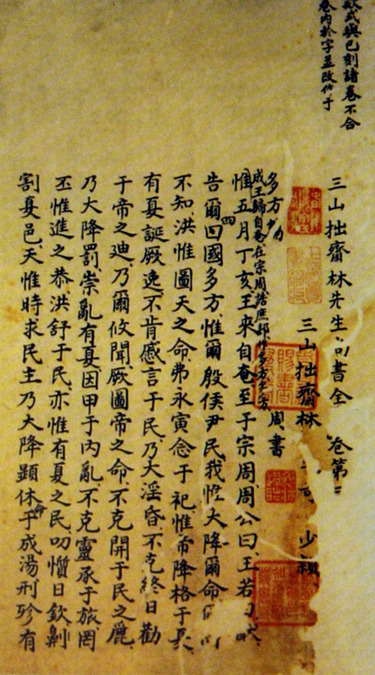 欵式與已刻諸卷不合
卷内於字並改作于
三山拙齋林先生尚書全 卷第
三山拙齋林 少穎
周書
多方
成王歸自奄在宗周誥庶邦作多方多方
惟五月丁亥王來自奄至于宗周周公曰王若曰猷
告爾四國多方惟爾殷侯尹民我惟大降爾命
不知洪惟圖天之命弗永寅念于祀惟帝降格于夏
有夏誕厥逸不肯慼言于民乃大淫昏不克終日勸
于帝之迪乃爾攸聞厥圖帝之命不克開于民之麗
乃大降罰崇亂有夏因甲于内亂不克靈承于旅罔
丕惟進之恭洪舒于民亦惟有夏之民叨懫日欽劓
割夏邑天惟時求民主乃大降顯休命于成湯刑殄有